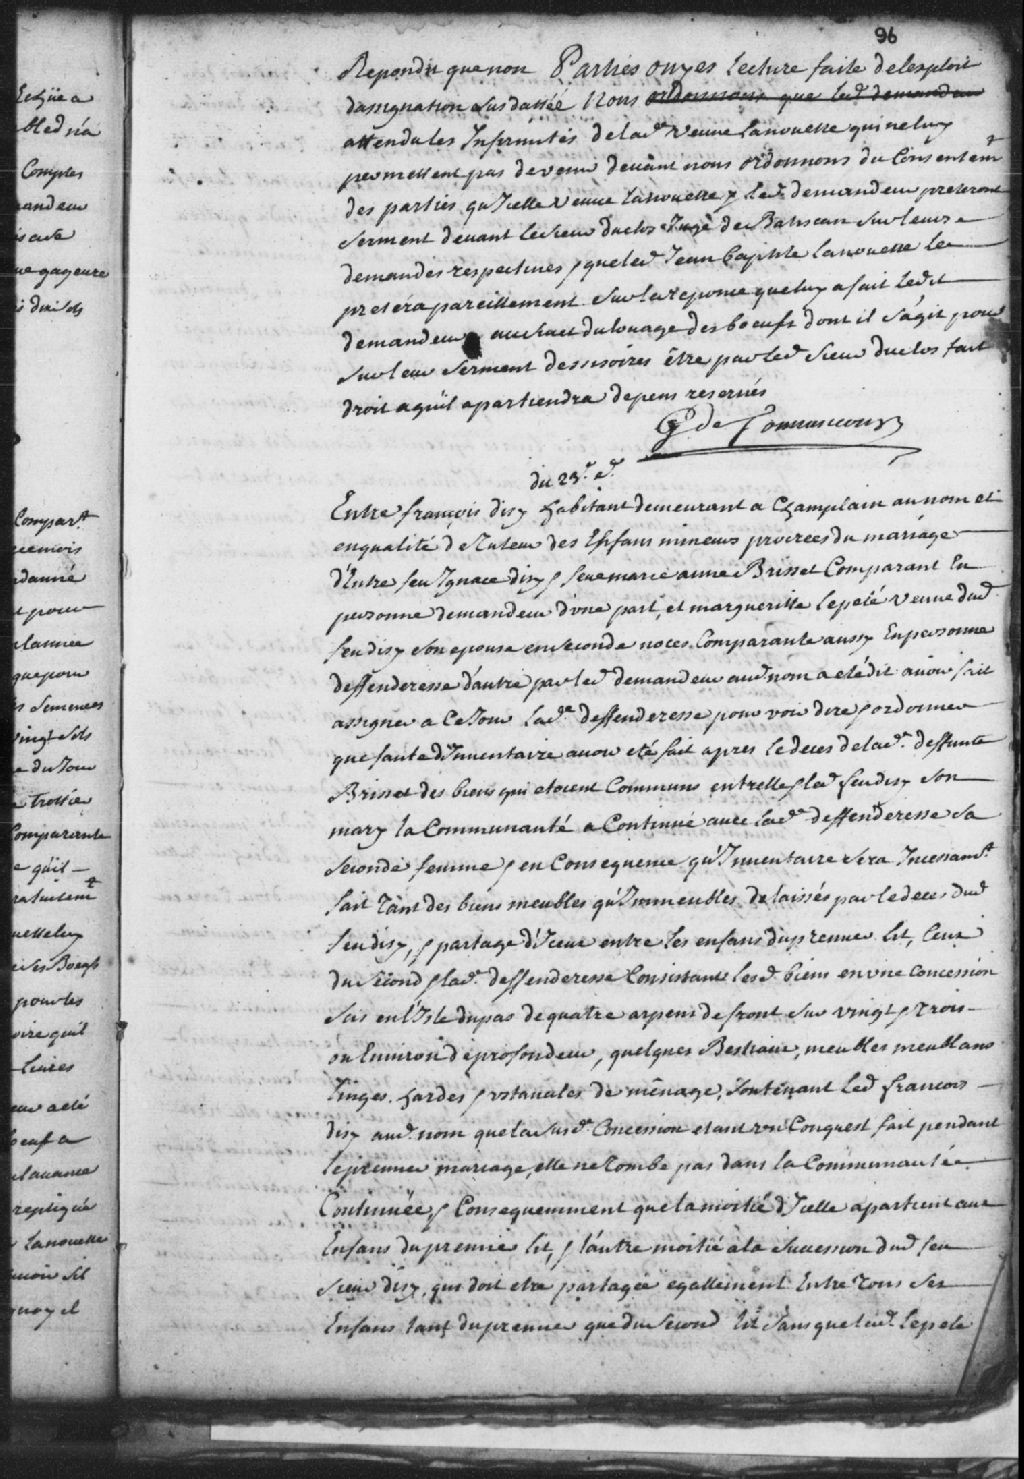 96
Repondu que non Parties ouyes lecture faite de lexploit
dassignation susdattée Nous ordonnons que led. demandeur
attendu les Infirmités de lad.e veuve Lanouette qui ne luy
permettent pas de venir devant nous ordonnons du Consentem.t
des parties qu'Icelle veuve Lanouette & led. demandeur preteront
serment devant le sieur duclos Juge de Batiscan sur leurs
demandes respectives & que led. Jean Baptiste Lanouette le
pretera pareillement sur la reponse que luy a fait ledit
demandeur au sujet du louage des boeufs dont il s'agit pour
sur leur serment dessisoires être par led. sieur duclos fait
droit a qu'il apartiendra depens reservés
G. de Tonnancour
du 23.e d.
Entre françois disy habitant demeurant a Champlain au nom et
en qualité de Tuteur des Enfans mineurs procrées du mariage
d'Entre feu Ignace disy & feue marie anne Brisset Comparant En
personne demandeur d'une part, et margueritte Lepelé veuve dud.
feu disy son epouse en seconde noces Comparante aussy En personne
deffenderesse d'autre par led. demandeur aud. nom a eté dit avoir fait
assigner a Ce Jour lad.e deffenderesse pour voir dire & ordonner
que faute d'Inventaire avoir eté fait apres le deces de lad.e deffunte
Brisset des biens qui etoient Communs entrelle & led. feu disy son
mary la Communauté a Continué avec lad.e deffenderesse sa
seconde femme & en Consequence qu'Inventaire sera Incessam.t
fait Tant des biens meubles qu'Immeubles delaissés par le deces dud.
feu disy, & partage d'Iceux entre les enfans du premier lit, Ceux
du second & lad.e deffenderesse Consistants lesd. biens en une Concession
sise en l'Isle dupas de quatre arpens de front sur vingt & trois
ou Environ de profondeur, quelques Bestiaux, meubles meublans
Linges hardes & ustancilles de ménage, soutenant led. francois
disy aud. nom que la susd.e Concession etant un Conquest fait pendant
le premier mariage, elle ne tombe pas dans la Communautée
Continuée & Consequemment que la moitié d'Icelle apartient aux
Enfans du premier lit, & l'autre moitié a la succession dud. feu
sieur disy, qui doit etre partagée egallement Entre Tous ses
Enfans tant du premier que du second lit sans que lad. Lepelé